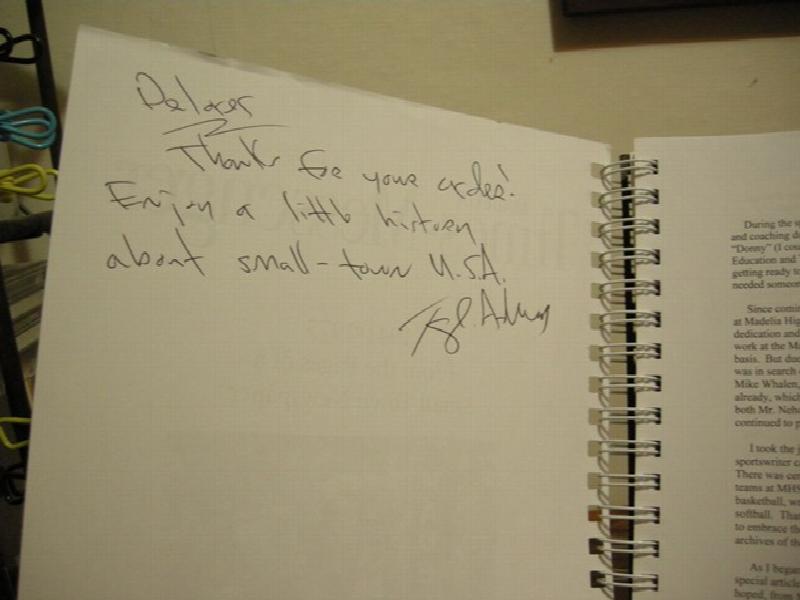 Delores
Thanks for your order!
Enjoy a little history
about small-town U.S.A.
During the
and coaching
"Donny" (I
Education and
getting ready to
needed
Since
at Madelia
dedication and
work at the
basis. But
was in search
Mike Whalen,
already,
both Mr.
continued to
I took the
sportswriter
There was
teams at
basketball,
softball.
to embrace
archives of
As I
special
hoped, from